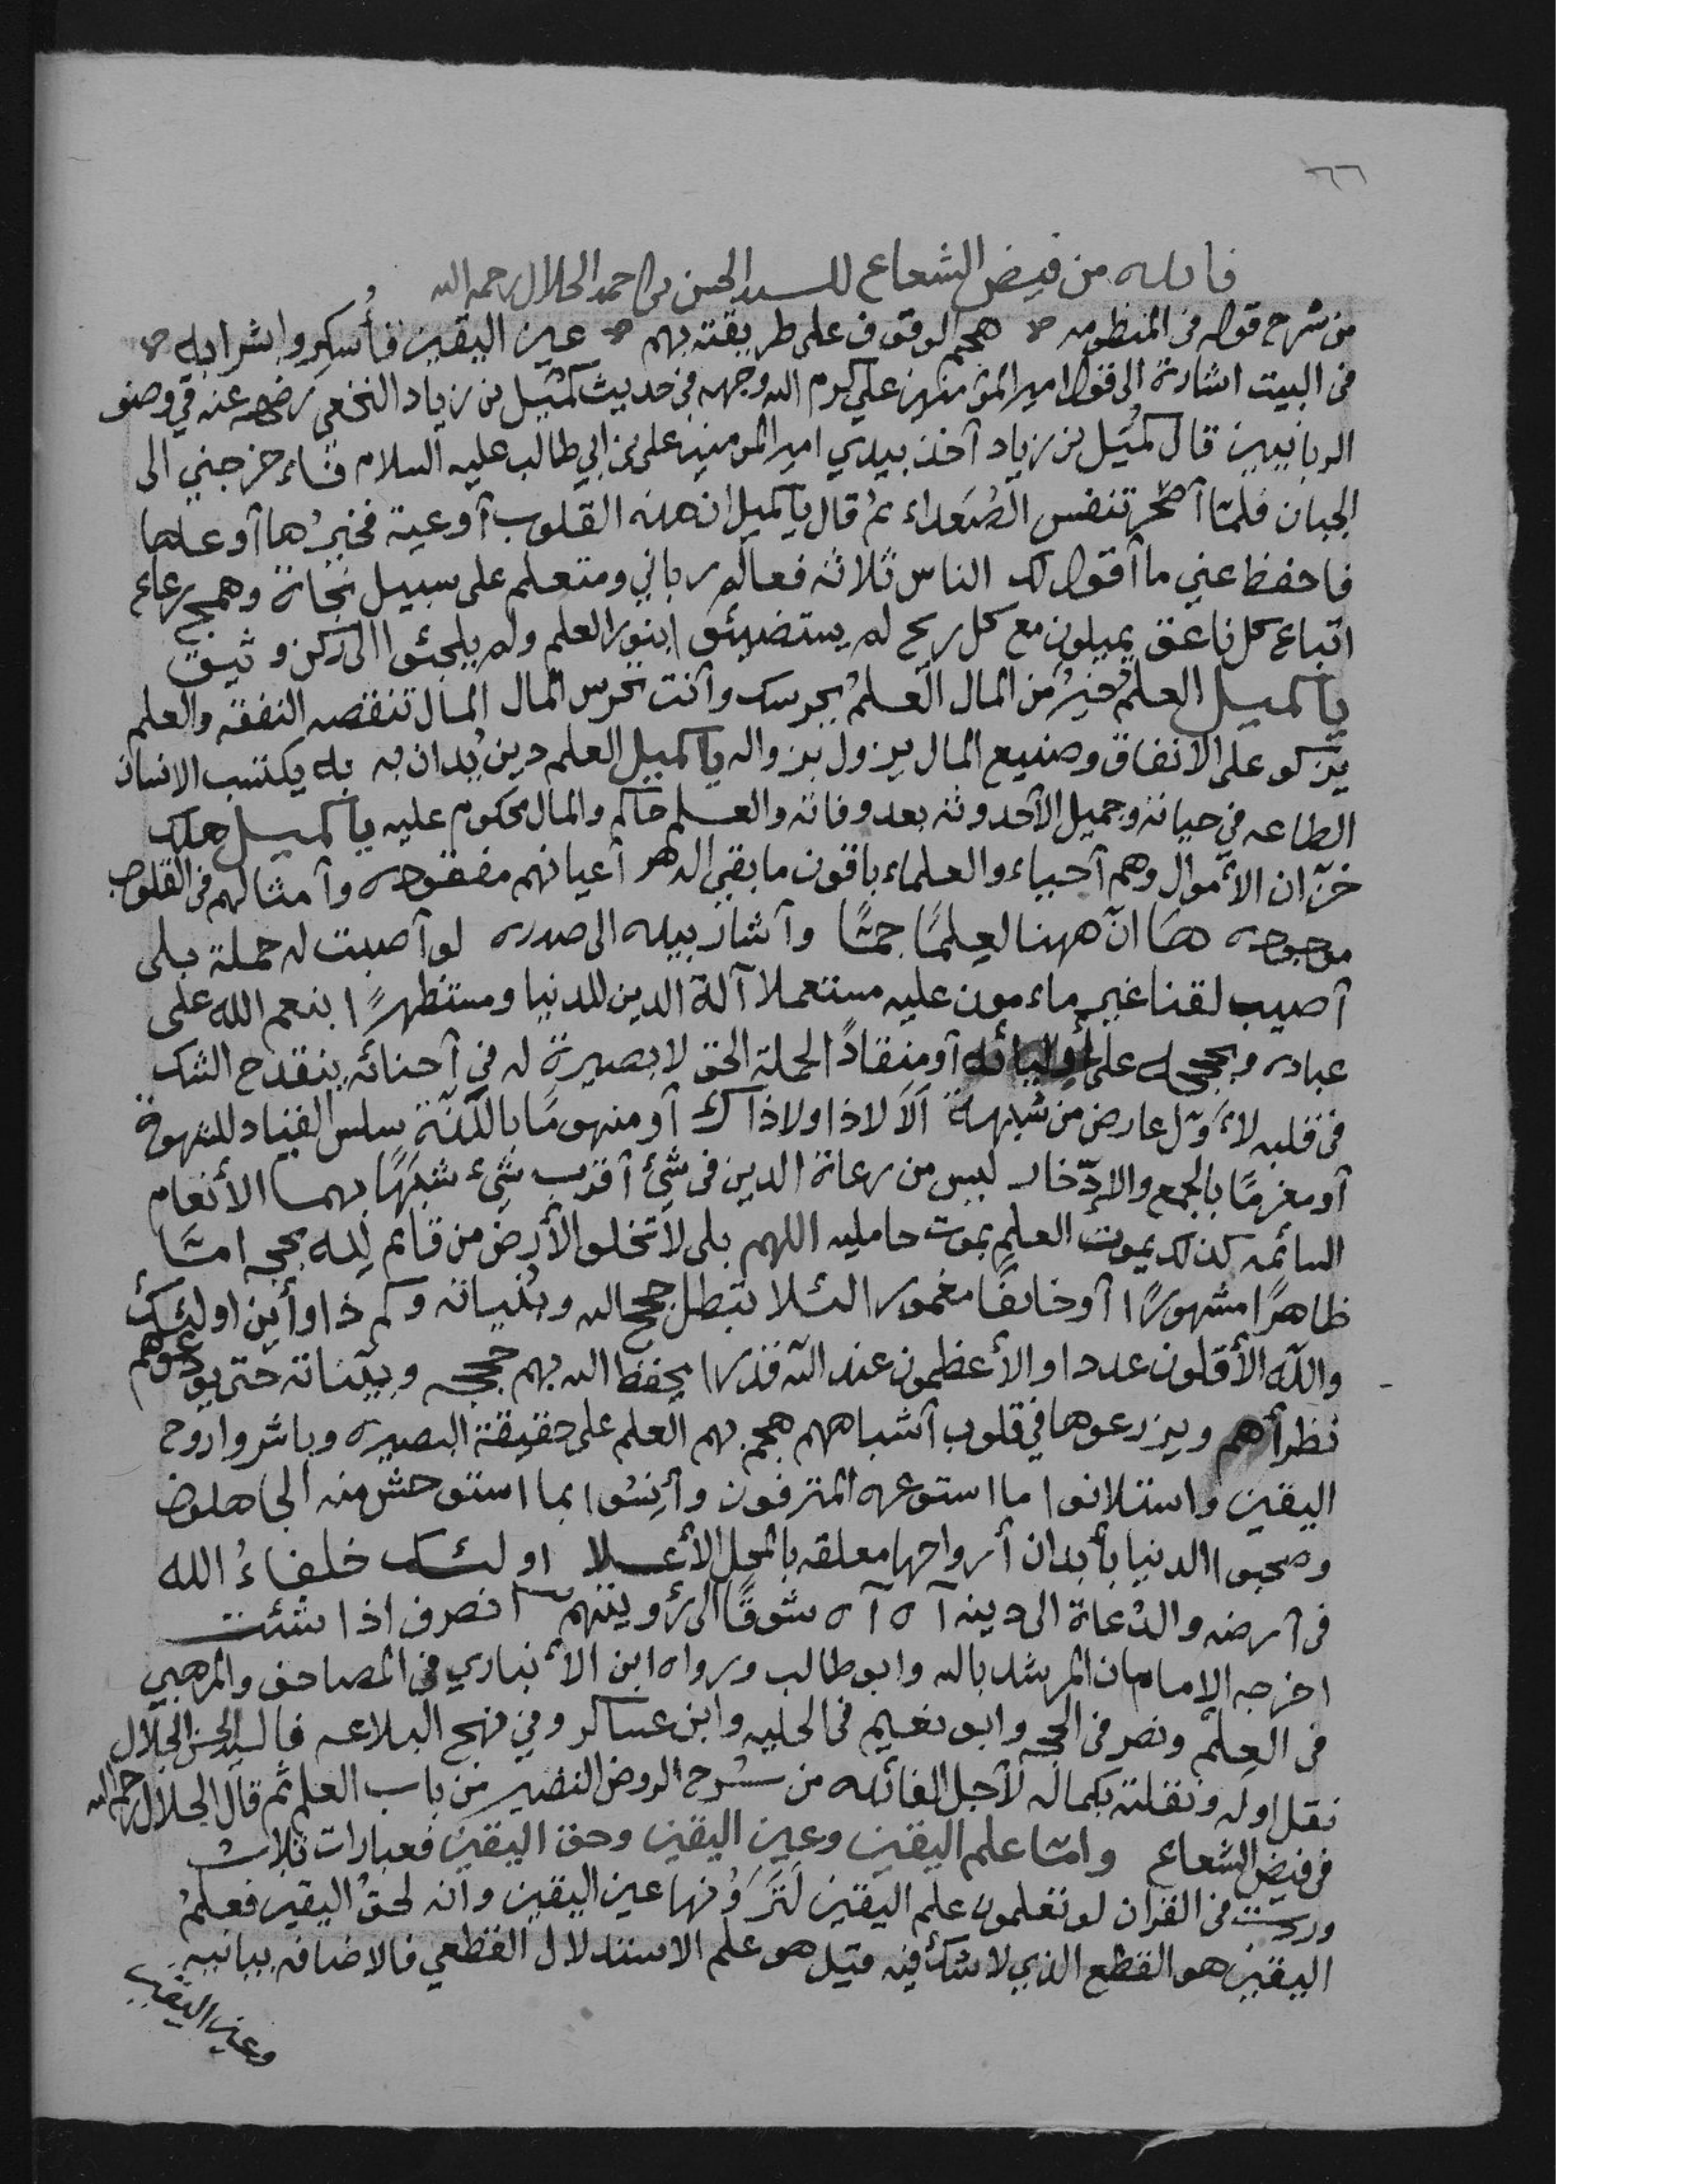 ٦٦
فائده من فيض الشعاع للسيد الحسن بن احمد الجلال رحمه الله
من شرح قوله في المنظومه هجم الوقوف على طريقته بهم عين اليقين فأُسكِروا بشرابه
في البيت اشارة الى قول امير المؤمنين علي كرم الله وجهه في حديث كميل بن زياد النخعي رضي الله عنه في وصف
الربانيين قال كُميل بن زياد أخذ بيدي امير المؤمنين علي بن ابي طالب عليه السلام فاءخرجني الى
الجبان فلمّا أصحر تنفس الصُعَداء ثم قال يا كميل ان هذه القلوب أوعية فخيرُها أوعاها
فاحفظ عني ما أقول لك الناس ثلاثه فعالم رباني ومتعلم على سبيل نجاة وهمج رعاع
اتباع كل ناعق يميلون مع كل ريح لم يستضيئوا بنور العلم ولم يلجئوا الى ركن وثيق
يا كميل العلمُ خيرٌ من المال العلمُ يحرسك وأنت تحرس المال المال تنقصه النفقه والعلم
يزكو على الانفاق وصنيع المال يزول بزواله يا كميل العلم دين يُدان به به يكتسب الانسان
الطاعه في حياته وجميل الأحدوثه بعد وفاته والعلم حاكم والمال محكوم عليه يا كميل هلك
خزّان الأموال وهم أحياء والعلماء باقون ما بقي الدهر أعيانهم مفقوده وأمثالهم في القلوب
موجوده هَا انّ ههنا لعِلمًا جمًّا وأشار بيده الى صدره لو أصبت له حملة بلى
أصيب لقنا غير ماءمون عليه مستعملا آلة الدين للدنيا ومستظهرًا بنعم الله على
عباده وبحججه على أوليائه أو منقادًا لحملة الحق لا بصيرة له في أحنائه ينقدح الشك
في قلبه لأوّل عارض من شبهة ألا لا ذا ولا ذاك أو منهومًا باللّذّة سلس القياد للشهوة
أو مغرمًا بالجمع والادّخار ليس من رعاة الدين في شيئ أقرب شيء شبهًا بهما الأنعام
السائمه كذلك يموت العلم بموت حامليه اللهم بلى لا تخلو الأرض من قائم لله بحجه امّا
ظاهرًا مشهورًا أو خائفًا مغمورا لئلا تبطل حجج الله وبيّناته وكم ذا وأين اولئك
والله الأقلون عددا والأعظمون عند الله قدرا يحفظ الله بهم حججه وبيّناته حتى يودعوهم
نظرأهم ويزرعوها في قلوب أشباههم هجم بهم العلم على حقيقة البصيره وباشروا روح
اليقين واستلانوا ما استوعره المترفون وأنِسُوا بما استوحش منه الجاهلون
وصحبوا الدنيا بأبدان أرواحها معلقه بالمحل الأعلا اولئك خلفاءُ الله
في أرضه والدُعاة الى دينه آه آه شوقًا الى رؤيتهم انصرف اذا شئت
اخرجه الامامان المرشد بالله وابو طالب ورواه ابن الأنباري في المصاحف والمرهبي
في العِلم ونصر في الحجه وابو نعيم في الحليه وابن عساكر وفي نهج البلاغه قال السيد الحسن الجلال
نقل اوله ونقلته بكماله لأجل الفائده من شرح الروض النضير من باب العلم ثم قال الجلال رحمه الله
في فيض الشعاع وامّا علم اليقين وعين اليقين وحق اليقين فعبارات ثلاث
وردت في القران لو تعلمون علم اليقين لَتَرَوُنها عين اليقين وانه لحقُ اليقين فعلمُ
اليقين هو القطع الذي لا شك فيه قيل هو علم الاستدلال القطعي فالاضافه بيانيه
وعين اليقين